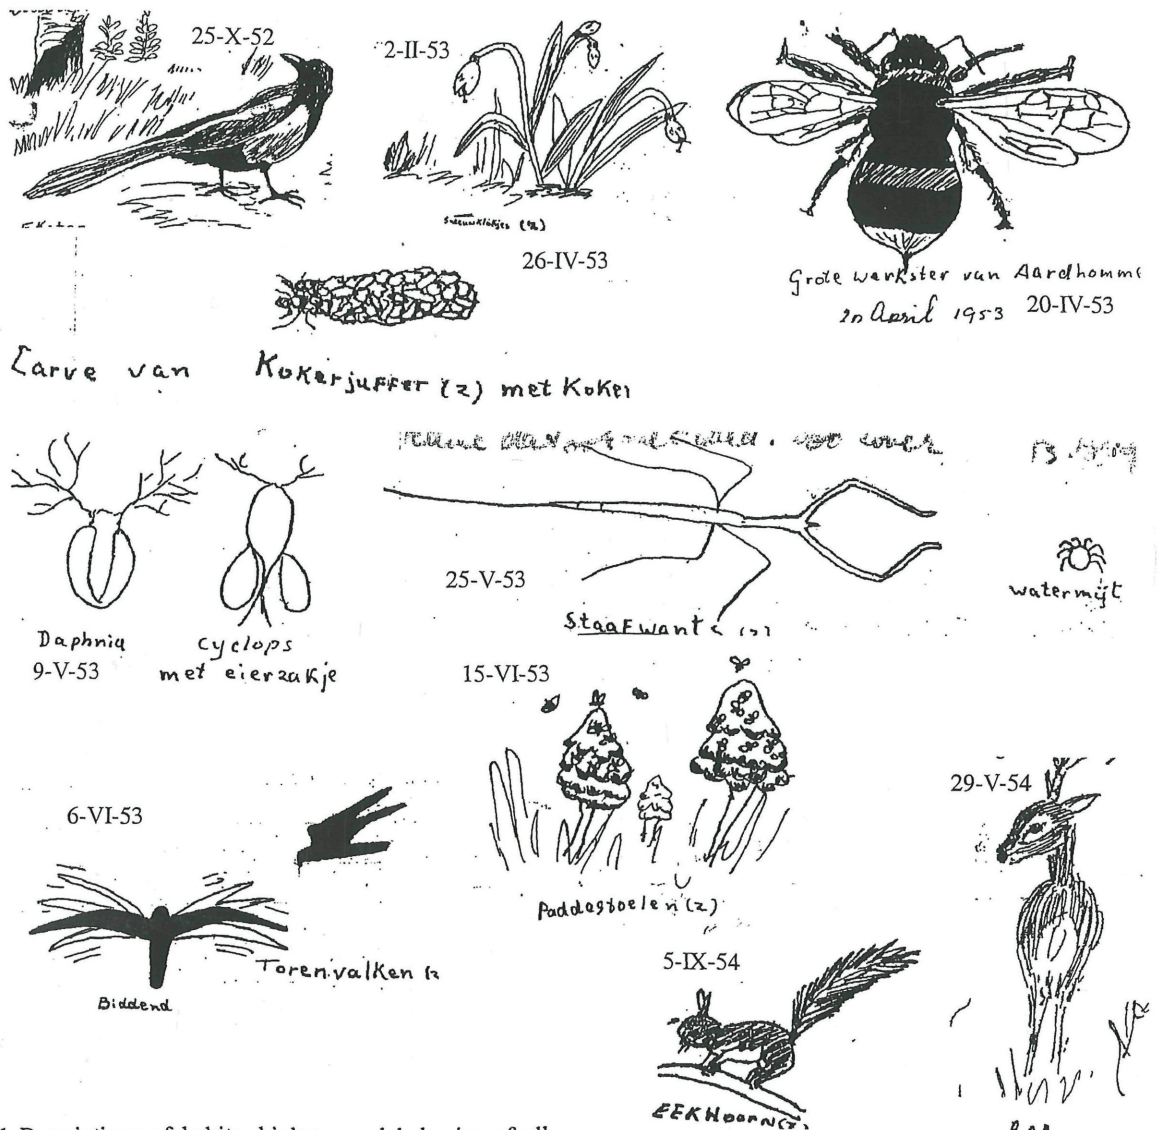 25-X-52
2-II-53
(z)
26-IV-53
Grote werkster van Aardhomme
20 April 1953 20-IV-53
Larve van Kokerjuffer (z) met Koker
Daphnia
9-V-53
cyclops
met eierzakje
25-V-53
Staafwants
watermijt
15-VI-53
Paddestoelen (z)
6-VI-53
Torenvalken
Biddend
29-V-54
5-IX-54
EEKHoorn(z)